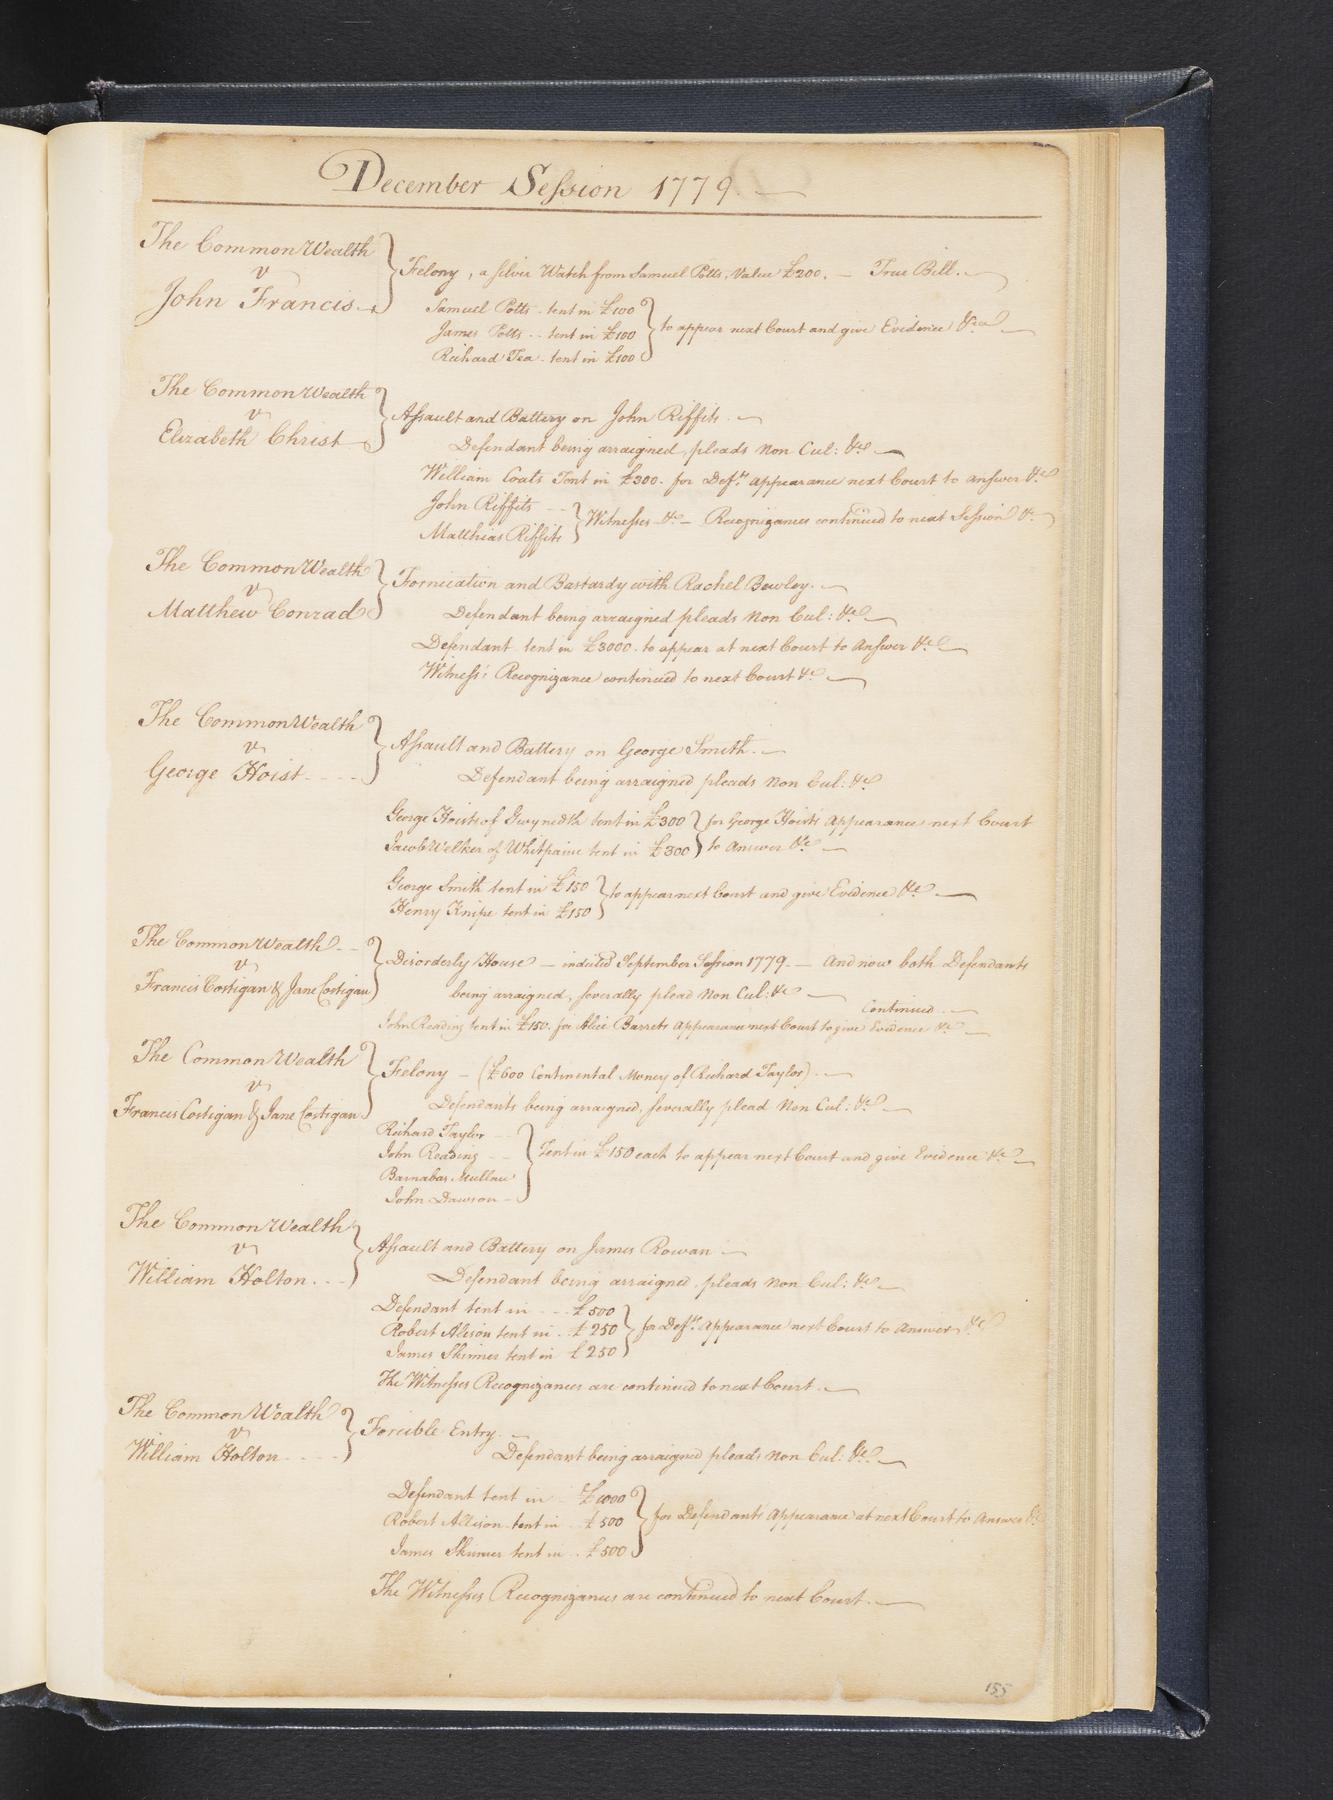 December Session 1779.
The CommonWealth
v
John Francis
Felony, a silver Watch from Samuel Potts, Value £200. — True Bill.
Samuel Potts - tent in £100
James Potts - - tent in £100
Richard Tea - tent in £100
to appear next Court and give Evidence &ca
The CommonWealth
v
Elizabeth Christ
Assault and Battery on John Riffits.
Defendant being arraigned, pleads Non Cul: &c
William Coats Tent in £300. for Defts. Appearance next Court to Answer &c
John Riffits - -
Matthias Riffits
Witnesses &c — Recognizances continued to next Session &c
The CommonWealth
v
Matthew Conrad
Fornication and Bastardy with Rachel Bewley.
Defendant being arraigned pleads Non Cul: &c
Defendant tent in £3000. to appear at next Court to Answer &c
Witness's Recognizance continued to next Court &c
The CommonWealth
v
George Hoist - - - -
Assault and Battery on George Smith.
Defendant being arraigned pleads Non Cul: &c
George Hoists of Gwynedth tent in £300
Jacob Welker of Whitpaine tent in £300
for George Hoist's Appearance next Court
to Answer &c
George Smith tent in £150
Henry Knipe tent in £150
to appear next Court and give Evidence &c
The CommonWealth - -
v
Francis Costigan & Jane Costigan
Disorderly House — indicted September Session 1779. — And now both Defendants
being arraigned, severally plead Non Cul: &c
Continued.
John Reading tent in £150. for Alice Barrets Appearance next Court to give Evidence &c
The CommonWealth
v
Francis Costigan & Jane Costigan
Felony — (£600 Continental Money of Richard Taylor).
Defendants being arraigned, severally plead Non Cul: &c
Richard Taylor - -
John Reading - -
Barnabas Mullan
John Dawson -
Tent in £150 each to appear next Court and give Evidence &c
The CommonWealth
v
William Holton. - -
Assault and Battery on James Rowan
Defendant being arraigned, pleads Non Cul: &c
Defendant tent in - - - £500
Robert Alison tent in - £250
James Skinner tent in £250
for Defts. Appearance next Court to Answer &c
The Witnesses Recognizances are continued to next Court.
The CommonWealth
v
William Holton - - - -
Forcible Entry.
Defendant being arraigned pleads Non Cul: &c
Defendant tent in - £1000
Robert Allison tent in - £500
James Skinner tent in - £500
for Defendants Appearance at next Court to Answer &c
The Witnesses Recognizances are continued to next Court.
155